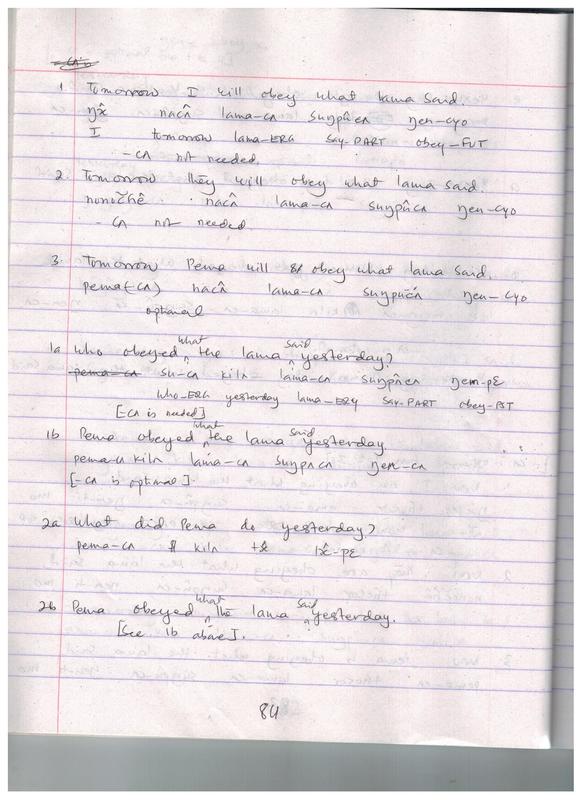 1. Tomorrow I will obey what lama said.
ŋx̂ nacʌ̂ lama-cʌ suŋpûcʌ ŋen-cyo
I tomorrow lama-ERG say-PART obey-FUT
-cʌ not needed.
2. Tomorrow they will obey what lama said.
nacʌ̂ lama-cʌ suŋpûcʌ ŋen-cyo
- cʌ not needed
3. Tomorrow Pema will obey what lama said.
pema(-cʌ) nacʌ̂ lama-cʌ ŋen-cyo
optional
1a Who obeyed what the lama said yesterday?
su-cʌ kilʌ lama-cʌ ŋem-pɛ
Who-ERG yesterday lama-ERG say-PART obey-PST
[-cʌ is needed]
1b Pema obeyed what the lama said yesterday
pema-cʌ kilʌ lama-cʌ suŋpʌcʌ ŋen-cʌ
[-cʌ is optional].
2a What did Pema do yesterday?
pema-cʌ kilʌ
2b Pema obeyed what the lama said yesterday.
[See 1b above].
84